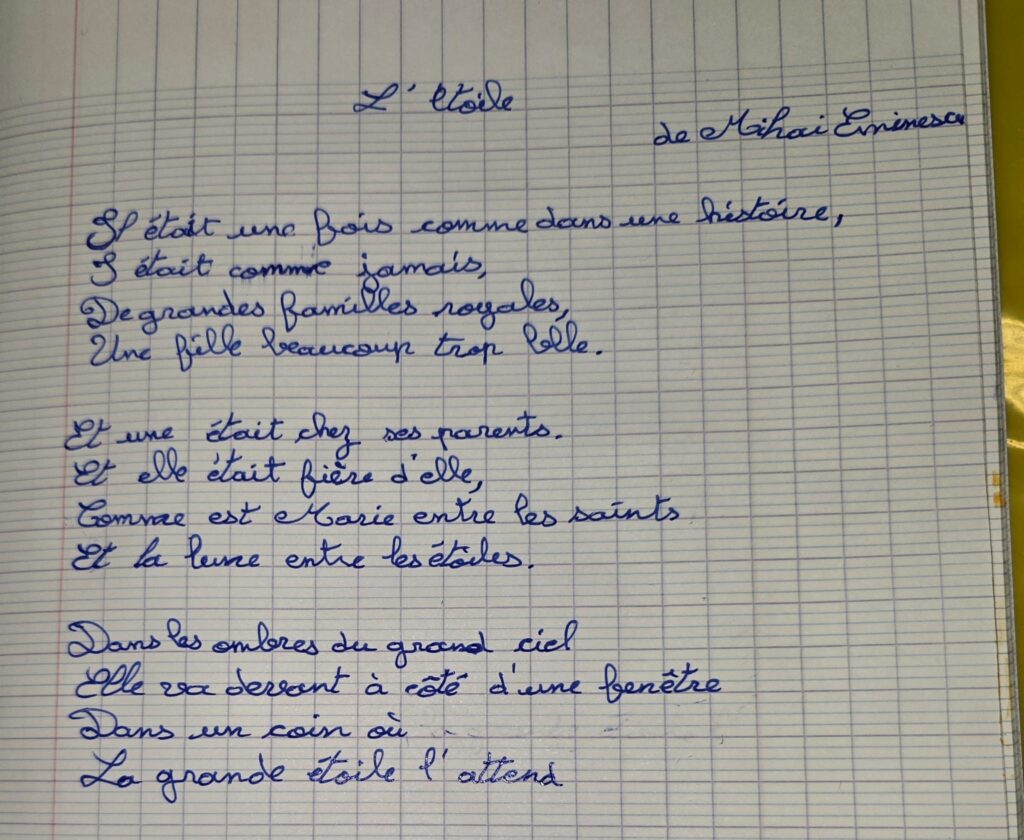 L'étoile
de Mihai Eminescu
Il était une fois comme dans une histoire,
I était comme jamais,
De grandes familles royales,
Une fille beaucoup trop belle.
Et une était chez ses parents.
Et elle était fière d'elle,
Comme est Marie entre les saints
Et la lune entre les étoiles.
Dans les ombres du grand ciel
Elle va devant à côté d'une fenêtre
Dans un coin où
La grande étoile l'attend